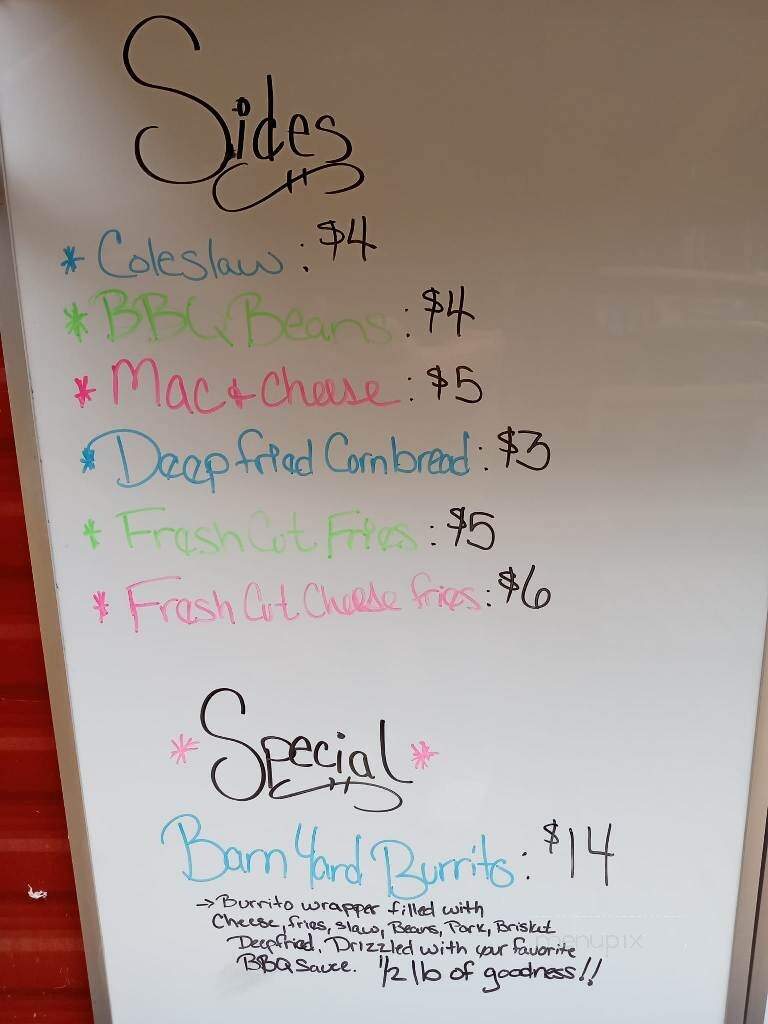 Sides
* Coleslaw : $4
* BBQ Beans : $4
* Mac & Cheese : $5
* Deep fried Cornbread : $3
* Fresh Cut Fries : $5
* Fresh Cut Cheese fries : $6
* Special *
Barn Yard Burrito : $14
→ Burrito wrapper filled with
Cheese, fries, slaw, Beans, Pork, Brisket
Deepfried. Drizzled with your favorite
BBQ Sauce. 1/2 lb of goodness!!
menupix